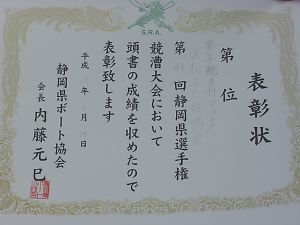 S.R.A.
表彰状
第 位
第 回静岡県選手権
競漕大会において
頭書の成績を収めたので
表彰致します
平成 年 月 日
静岡県ボート協会
会長 内藤元巳